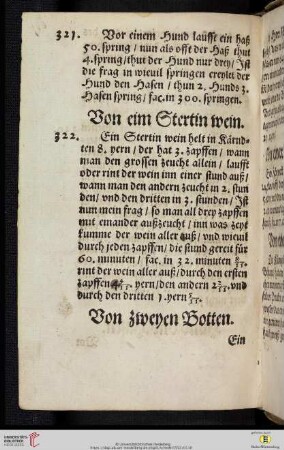 321. Vor einem Hund laufft ein haß
50. spring / nun als offt der Haß thut
4. spring / thut der Hund nur drey / Ist
die frag in wieuil springen ereylet der
Hund den Hasen / thun 2. Hunds 3.
Hasen spring / fac. in 300. springen.
Von eim Stertin wein.
322. Ein Stertin wein helt in Kärnd-
ten 8. yern / der hat 3. zapffen / wann
man den grossen zeucht allein / laufft
oder rint der wein inn einer stund auß /
wann man den andern zeucht in 2. stun
den / vnd den dritten in 3. stunden / Ist
nun mein frag / so man all drey zapffen
mit einander außzeucht / inn was zeyt
kumme der wein aller auß / vnd wieuil
durch jeden zapffen / die stund gereit für
60. minuten / fac. in 32. minuten 8/11
rint der wein aller auß / durch den ersten
zapffen yern / den andern 2 2/11 vnd
durch den dritten 1. yern 5/11.
Von zweyen Botten.
Ein